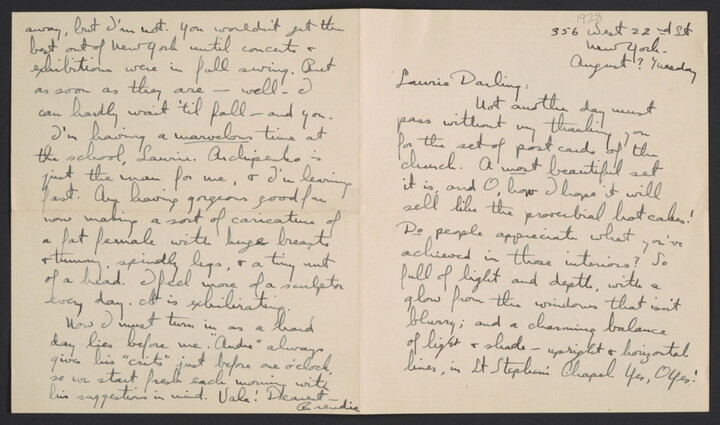 1928
356 West 22nd St
New York.
August? Tuesday
Laurie Darling:
Not another day must
pass without my thanking you
for the set of post cards of the
church. A most beautiful set
it is, and O, how I hope it will
sell like the proverbial hot cakes!
Do people appreciate what you've
achieved in those interiors? So
full of light and depth, with a
glow from the windows that isn't
blurry; and a charming balance
of light & shade – upright & horizontal
lines, in St Stephen's Chapel. Yes, O Yes!
away, but I'm not. You wouldn't get the
best out of New York until concerts &
exhibitions were in full swing. But
as soon as they are – well – I
can hardly wait 'til fall – and you.
I'm having a marvelous time at
the school, Laurie. Archipenko is
just the man for me, & I'm learning
fast. Am having gorgeous good fun
now making a sort of caricature of
a fat female with huge breasts
& tummy, spindly legs, & a tiny nut
of a head. I feel more of a sculptor
every day. It is exhilirating.
Now I must turn in as a hard
day lies before me. "Andre" always
gives his "crits" just before one o'clock,
so we start fresh each morning with
his suggestions in mind. Vale! Dearest –
Brendie